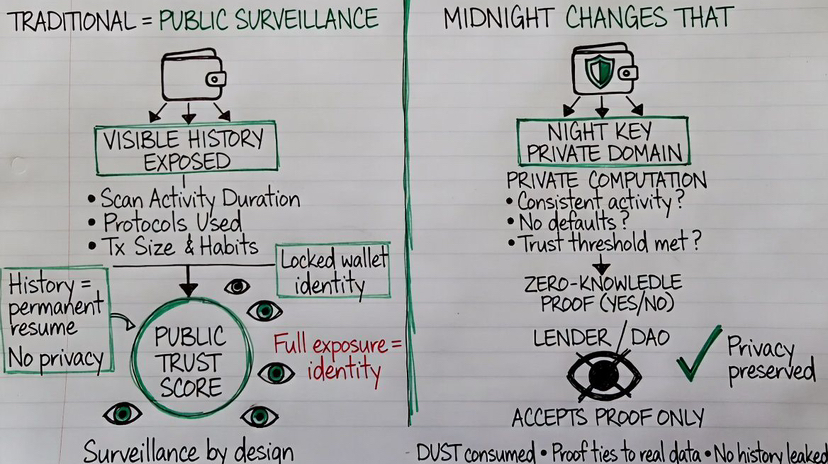 TRADITIONAL = PUBLIC SURVEILLANCE
VISIBLE HISTORY
EXPOSED
• Scan Activity Duration
• Protocols Used
• Tx Size & Habits
Locked wallet
identity
History =
permanent
resume
No privacy
PUBLIC
TRUST
SCORE
Full exposure =
identity
Surveillance by design
MIDNIGHT CHANGES THAT
NIGHT KEY
PRIVATE DOMAIN
PRIVATE COMPUTATION
• Consistent activity?
• No defaults?
• Trust threshold met?
ZERO-KNOWLEDLE
PROOF (YES/NO)
LENDER / DAO
Privacy
preserved
ACCEPTS PROOF ONLY
· DUST consumed • Proof ties to real data • No history leaked